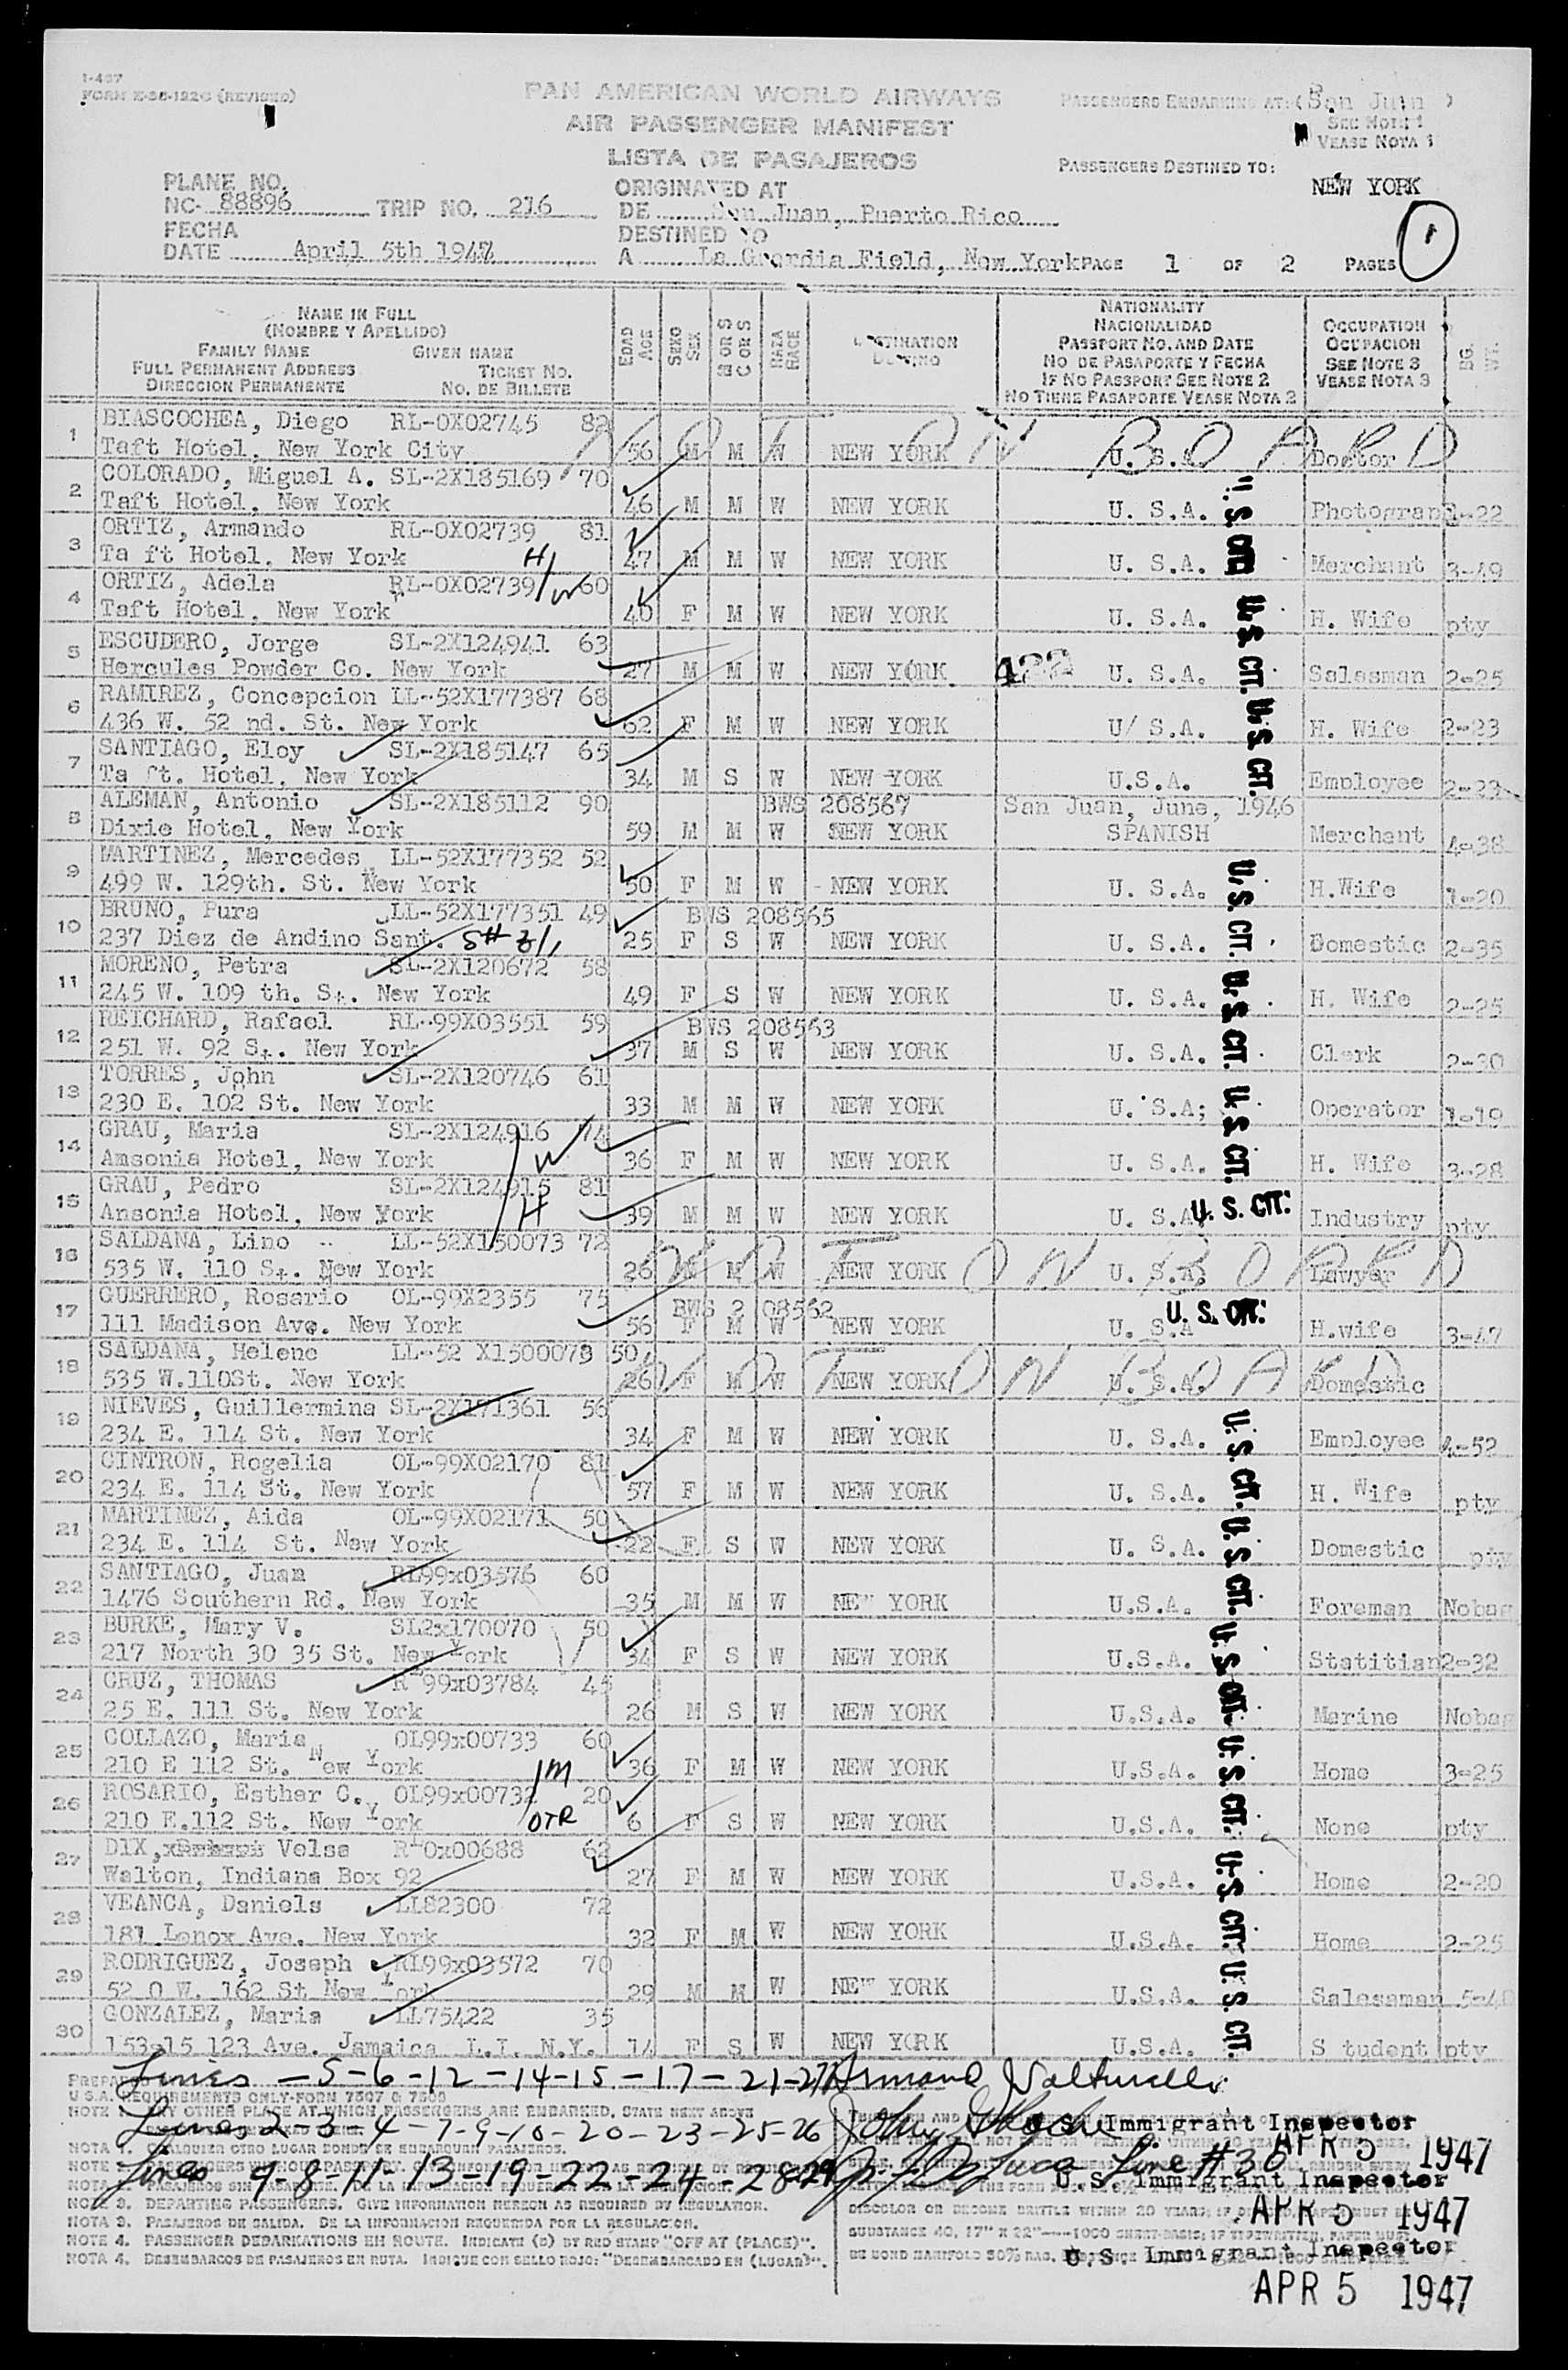 I-487
FORM E-36-122C (REVISED)
PAN AMERICAN WORLD AIRWAYS
AIR PASSENGER MANIFEST
LISTA DE PASAJEROS
PASSENGERS EMBARKING AT: (San Juan)
SEE NOTE 1
VEASE NOTA 1
PASSENGERS DESTINED TO:
NEW YORK
PLANE NO.
NC- 88896 TRIP NO. 216
FECHA
DATE April 5th 1947
ORIGINATED AT
DE San Juan, Puerto Rico
DESTINED TO
A La Guardia Field, New York PAGE 1 OF 2 PAGES
1
NAME IN FULL
(NOMBRE Y APELLIDO)
FAMILY NAME GIVEN NAME
FULL PERMANENT ADDRESS TICKET NO.
DIRECCION PERMANENTE NO. DE BILLETE
EDAD AGE
SEXO SEX
M OR S
C OR S
RAZA RACE
DESTINATION
DESTINO
NATIONALITY
NACIONALIDAD
PASSPORT NO. AND DATE
NO DE PASAPORTE Y FECHA
IF NO PASSPORT SEE NOTE 2
NO TIENE PASAPORTE VEASE NOTA 2
OCCUPATION
OCUPACION
SEE NOTE 3
VEASE NOTA 3
BG.
WT.
1 BIASCOCHEA, Diego RL-0X02745 82
Taft Hotel, New York City 56 M M W NEW YORK U. S.A. Doctor
NOT ON BOARD
2 COLORADO, Miguel A. SL-2X185169 70
Taft Hotel, New York 46 M M W NEW YORK U. S.A. Photograph 1-22
3 ORTIZ, Armando RL-0X02739 81
Ta ft Hotel, New York H 47 M M W NEW YORK U. S.A. Merchant 3-49
4 ORTIZ, Adela RL-0X02739 W 60
Taft Hotel, New York 40 F M W NEW YORK U. S.A. H. Wife pty
5 ESCUDERO, Jorge SL-2X124941 63
Hercules Powder Co. New York 27 M M W NEW YORK 422 U. S.A. Salesman 2-25
6 RAMIREZ, Concepcion LL-52X177387 68
436 W. 52 nd. St. New York 62 F M W NEW YORK U/ S.A. H. Wife 2-23
7 SANTIAGO, Eloy SL-2X185147 65
Ta ft. Hotel, New York 34 M S W NEW YORK U.S.A. Employee 2-23
8 ALEMAN, Antonio SL-2X185112 90 BWS 208567 San Juan, June, 1946
Dixie Hotel, New York 59 M M W NEW YORK SPANISH Merchant 4-38
9 MARTINEZ, Mercedes LL-52X177352 52
499 W. 129th. St. New York 50 F M W NEW YORK U. S.A. H.Wife 1-20
10 BRUNO, Pura LL-52X177351 49 BWS 208565
237 Diez de Andino Sant. 25 F S W NEW YORK U. S.A. Domestic 2-35
11 MORENO, Petra SL-2X120672 58
245 W. 109 th. St. New York 49 F S W NEW YORK U. S.A. H. Wife 2-25
12 REICHARD, Rafael RL-99X03551 59 BWS 208563
251 W. 92 St. New York 37 M S W NEW YORK U. S.A. Clerk 2-30
13 TORRES, John SL-2X120746 61
230 E. 102 St. New York 33 M M W NEW YORK U. S.A; Operator 1-19
14 GRAU, Maria SL-2X124916 74
Amsonia Hotel, New York W 36 F M W NEW YORK U. S.A. H. Wife 3-28
15 GRAU, Pedro SL-2X124915 81
Ansonia Hotel, New York H 39 M M W NEW YORK U. S.A. U. S. CIT. Industry pty
16 SALDANA, Lino LL-52X150073 72
535 W. 110 St. New York 26 M M W NEW YORK U. S.A. Lawyer
NOT ON BOARD
17 GUERRERO, Rosario OL-99X2355 75 BWS 2 08562
111 Madison Ave. New York 56 F M W NEW YORK U. S.A U. S. CIT. H.wife 3-47
18 SALDANA, Helene LL-52 X1500073 50
535 W.110St. New York 26 F M W NEW YORK U. S.A. Domestic
NOT ON BOARD
19 NIEVES, Guillermina SL-2X171361 56
234 E. 114 St. New York 34 F M W NEW YORK U. S.A. Employee 4-52
20 CINTRON, Rogelia OL-99X02170 81
234 E. 114 St. New York 57 F M W NEW YORK U. S.A. H. Wife pty
21 MARTINEZ, Aida OL-99X02171 50
234 E. 114 St. New York 22 F S W NEW YORK U. S.A. Domestic pty
22 SANTIAGO, Juan RL99x03576 60
1476 Southern Rd. New York 35 M M W NEW YORK U.S.A. Foreman Nobag
23 BURKE, Mary V. SL2x170070 50
217 North 30 35 St. New York 34 F S W NEW YORK U.S.A. Statitian 2-32
24 CRUZ, THOMAS RL99x03784 45
25 E. 111 St. New York 26 M S W NEW YORK U.S.A. Marine Nobag
25 COLLAZO, Maria OL99x00733 60
210 E 112 St. New York M 36 F M W NEW YORK U.S.A. Home 3-25
26 ROSARIO, Esther C. OL99x00732 20
210 E.112 St. New York DTR 6 F S W NEW YORK U.S.A. None pty
27 DIX, Velse RL0x00688 62
Walton, Indiana Box 92 27 F M W NEW YORK U.S.A. Home 2-20
28 VEANCA, Daniels LL82300 72
181 Lenox Ave. New York 32 F M W NEW YORK U.S.A. Home 2-25
29 RODRIGUEZ, Joseph RL99x03572 70
52 0 W. 162 St New York 29 M M W NEW YORK U.S.A. Salesaman 5-40
30 GONZALEZ, Maria LL75422 35
153-15 123 Ave. Jamaica L.I. N.Y. 14 F S W NEW YORK U.S.A. S tudent pty
U. S. CIT.
Lines - 5-6-12-14-15-17-21-27
U.S.A. REQUIREMENTS ONLY-FORM 7507 & 7509
Lines 2-3-4 7-9-10-20-23-25-26
U.S. Immigrant Inspector
APR 5 1947
Lines 9-8-11-13-19-22-24-28-29 Line #30
U.S. Immigrant Inspector
APR 5 1947
NOTE 3. DEPARTING PASSENGERS. GIVE INFORMATION HEREON AS REQUIRED BY REGULATION.
NOTA 3. PASAJEROS DE SALIDA. DE LA INFORMACION REQUERIDA POR LA REGULACION.
NOTE 4. PASSENGER DEBARKATIONS EN ROUTE. INDICATE (D) BY RED STAMP "OFF AT (PLACE)".
NOTA 4. DESEMBARCOS DE PASAJEROS EN RUTA. INDIQUE CON SELLO ROJO: "DESEMBARCADO EN (LUGAR)".
DISCOLOR OR BECOME BRITTLE WITHIN 20 YEARS;
SUBSTANCE 40, 17" X 22"
U.S. Immigrant Inspector
APR 5 1947